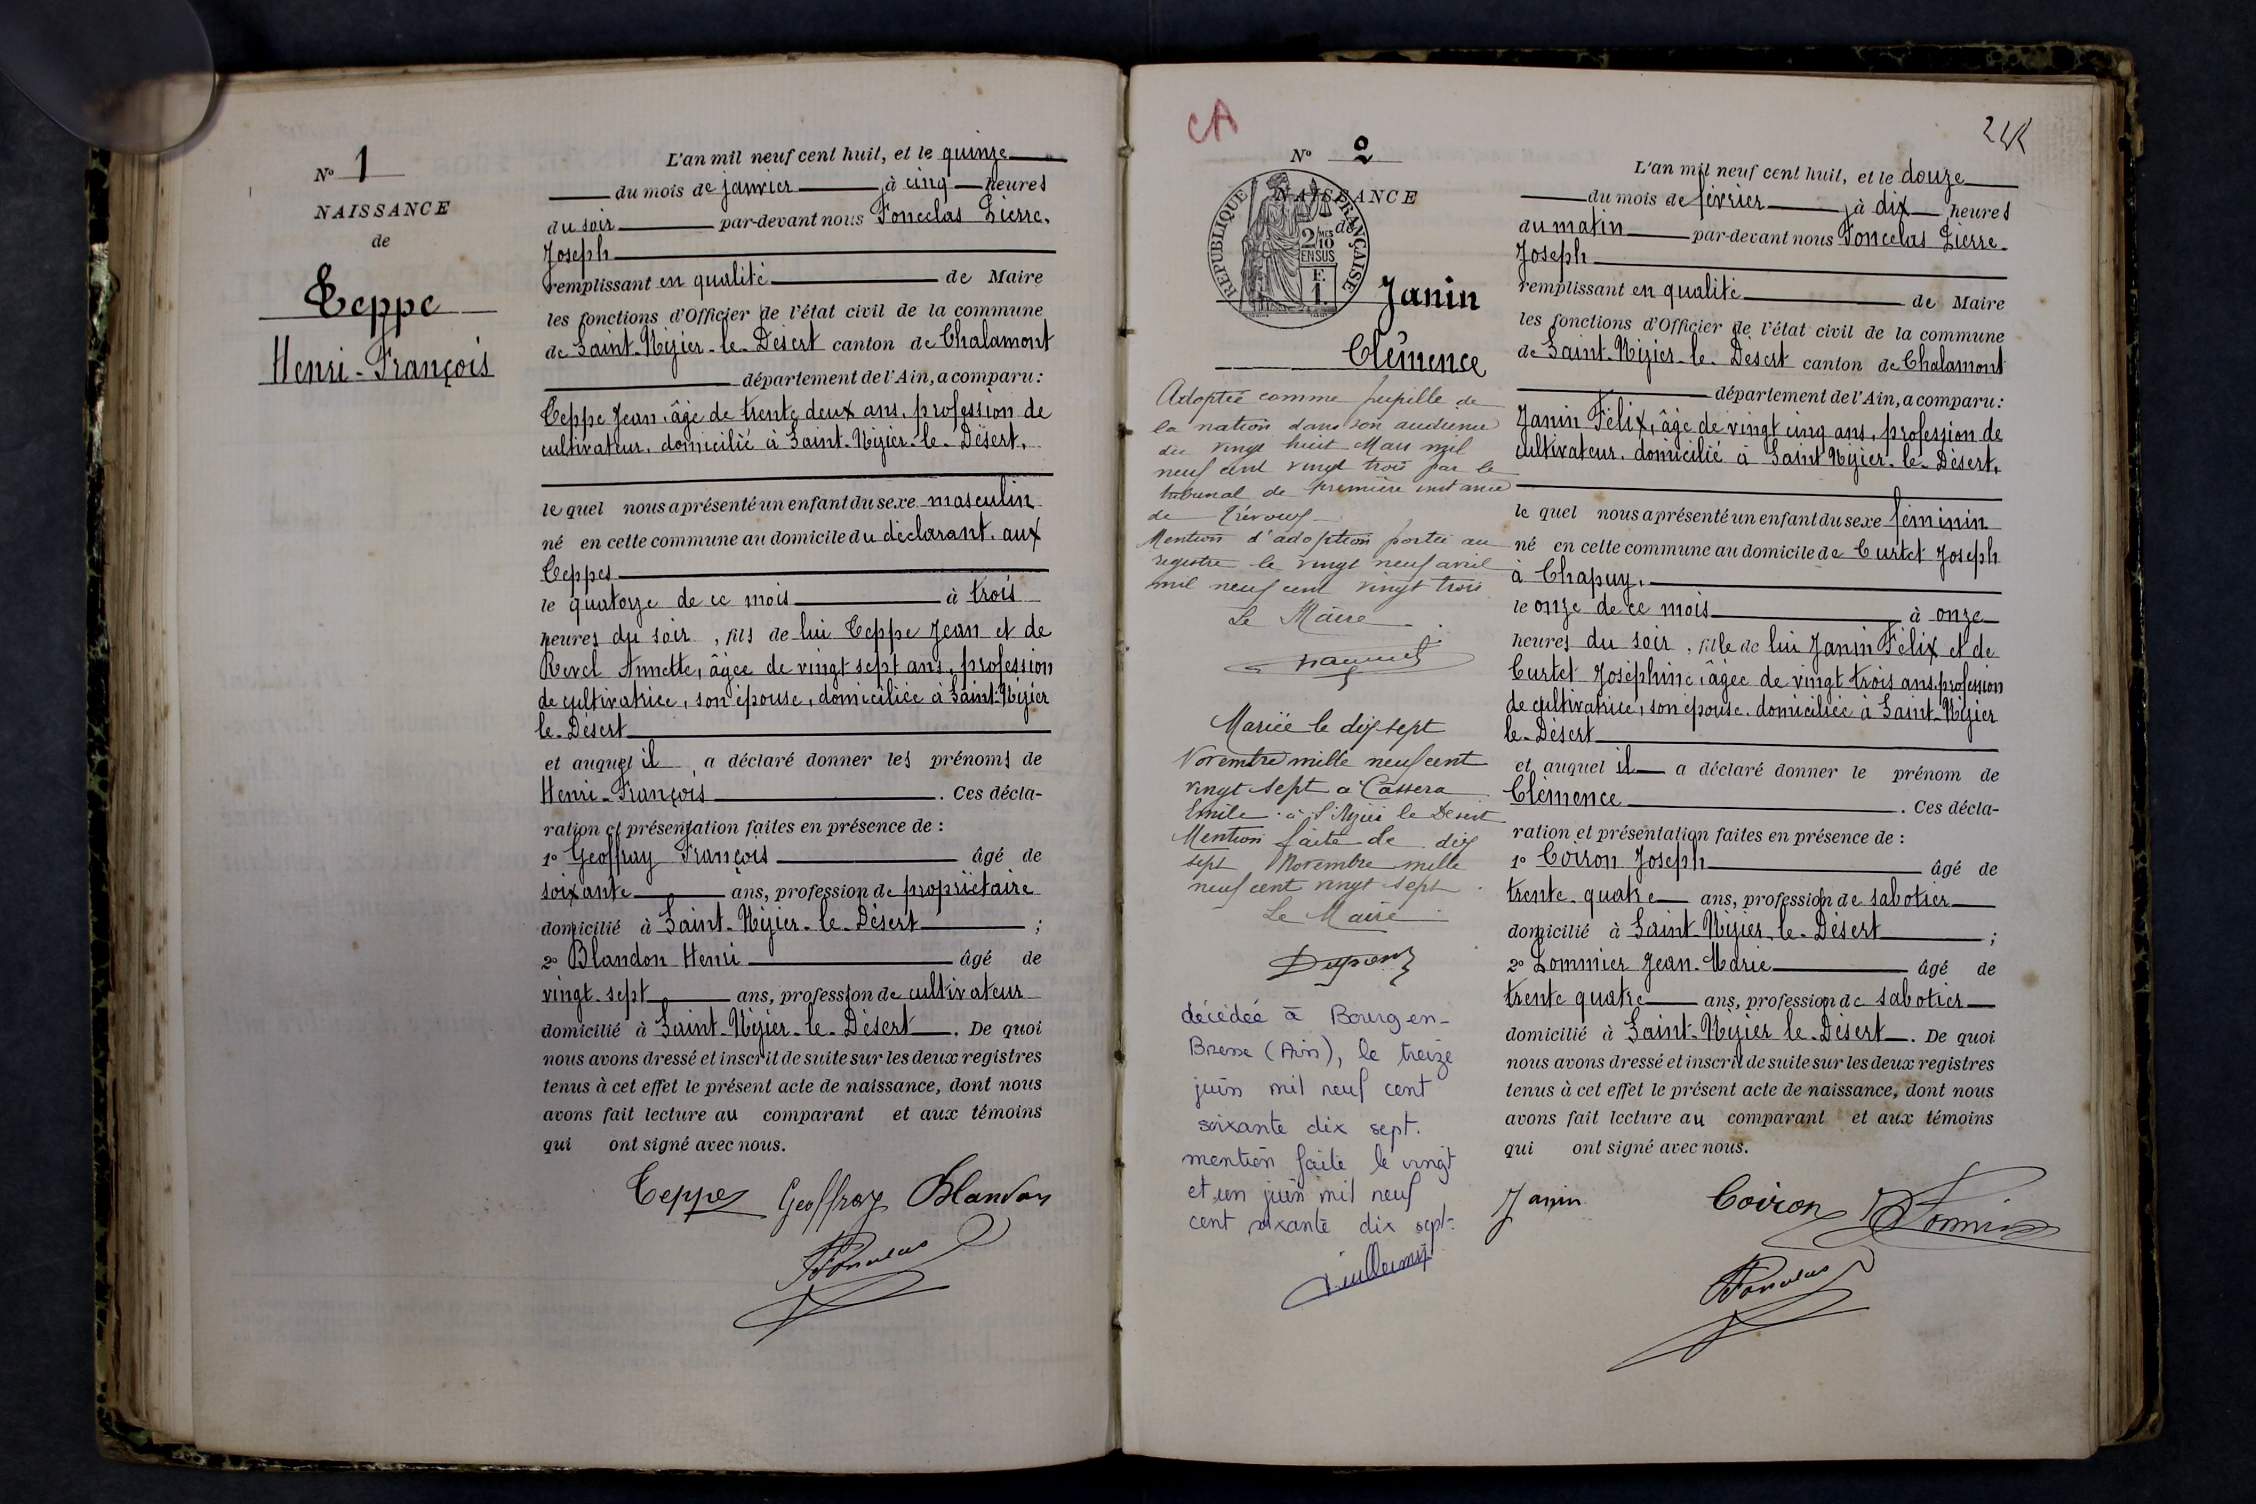 N° 1
NAISSANCE
de
Teppe
Henri-François
L'an mil neuf cent huit, et le quinze
du mois de janvier à cinq heures
du soir par-devant nous Fonceclas Pierre.
Joseph
remplissant en qualité de Maire
les fonctions d'Officier de l'état civil de la commune
de Saint-Nizier-le-Désert canton de Chalamont
département de l'Ain, a comparu :
Teppe Jean, âgé de trente deux ans, profession de
cultivateur, domicilié à Saint-Nizier-le-Désert,
le quel nous a présenté un enfant du sexe masculin
né en cette commune au domicile du déclarant, aux
Teppes
le quatorze de ce mois à trois
heures du soir, fils de lui Teppe Jean et de
Revel Annette, âgée de vingt sept ans, profession
de cultivatrice, son épouse, domiciliée à Saint-Nizier
le-Désert
et auquel il a déclaré donner les prénoms de
Henri-François. Ces décla-
ration et présentation faites en présence de :
1° Geoffray François âgé de
soixante ans, profession de propriétaire
domicilié à Saint-Nizier-le-Désert ;
2° Blandon Henri âgé de
vingt-sept ans, profession de cultivateur
domicilié à Saint-Nizier-le-Désert. De quoi
nous avons dressé et inscrit de suite sur les deux registres
tenus à cet effet le présent acte de naissance, dont nous
avons fait lecture au comparant et aux témoins
qui ont signé avec nous.
Teppe Geoffray Blandon
CA
N° 2
NAISSANCE
de
RÉPUBLIQUE FRANÇAISE
2/10 MES
EN SUS
F.
1.
Janin
Clémence
Adoptée comme pupille de
la nation dans son audience
du vingt huit Mars mil
neuf cent vingt trois par le
tribunal de première instance
de Trévoux
Mention d'adoption portée au
registre le vingt neuf avril
mil neuf cent vingt trois
Le Maire
Mariée le dix-sept
Novembre mille neuf cent
vingt sept à Cassera
Emile à St Nizier le Désert
Mention faite le dix
sept Novembre mille
neuf cent vingt sept
Le Maire
décédée à Bourg-en-
Bresse (Ain), le treize
juin mil neuf cent
soixante dix sept.
mention faite le vingt
et un juin mil neuf
cent soixante dix sept.
L'an mil neuf cent huit, et le douze
du mois de février à dix heures
du matin par-devant nous Fonceclas Pierre-
Joseph
remplissant en qualité de Maire
les fonctions d'Officier de l'état civil de la commune
de Saint-Nizier-le-Désert canton de Chalamont
département de l'Ain, a comparu :
Janin Félix, âgé de vingt cinq ans, profession de
cultivateur, domicilié à Saint Nizier-le-Désert,
le quel nous a présenté un enfant du sexe féminin
né en cette commune au domicile de Curtet Joseph
à Chapuy,
le onze de ce mois à onze
heures du soir, fille de lui Janin Félix et de
Curtet Joséphine, âgée de vingt trois ans, profession
de cultivatrice, son épouse, domiciliée à Saint-Nizier
le-Désert
et auquel il a déclaré donner le prénom de
Clémence. Ces décla-
ration et présentation faites en présence de :
1° Coiron Joseph âgé de
trente-quatre ans, profession de sabotier
domicilié à Saint-Nizier-le-Désert ;
2° Pommier Jean-Marie âgé de
trente quatre ans, profession de sabotier
domicilié à Saint-Nizier le-Désert. De quoi
nous avons dressé et inscrit de suite sur les deux registres
tenus à cet effet le présent acte de naissance, dont nous
avons fait lecture au comparant et aux témoins
qui ont signé avec nous.
Janin Coiron